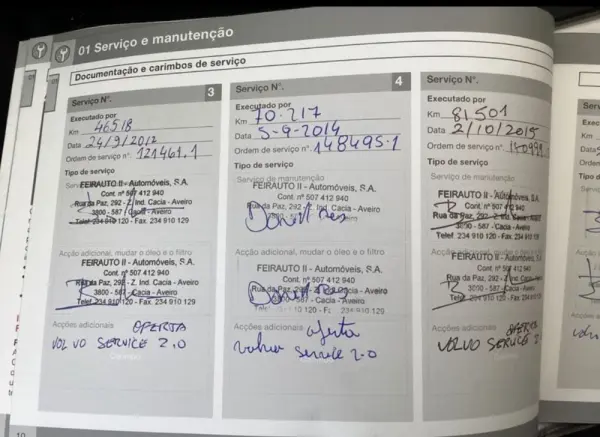 01 Serviço e manutenção
Documentação e carimbos de serviço
Serviço Nº. 3
Executado por
Km 46518
Data 24/9/2012
Ordem de serviço nº. 121461.1
Tipo de serviço
FEIRAUTO II - Automóveis, S.A.
Cont. nº 507 412 940
Rua da Paz, 292 - Z. Ind. Cacia - Aveiro
3800 - 587 - Cacia - Aveiro
Telef. 234 910 120 - Fax. 234 910 129
Acção adicional, mudar o óleo e o filtro
FEIRAUTO II - Automóveis, S.A.
Cont. nº 507 412 940
Rua da Paz, 292 - Z. Ind. Cacia - Aveiro
3800 - 587 - Cacia - Aveiro
Telef. 234 910 120 - Fax. 234 910 129
Acções adicionais OFERTA
VOLVO SERVICE 2.0
Serviço Nº. 4
Executado por
Km 70.217
Data 5-9-2014
Ordem de serviço nº. 148495.1
Tipo de serviço
Serviço de manutenção
FEIRAUTO II - Automóveis, S.A.
Cont. nº 507 412 940
Rua da Paz, 292 - Z. Ind. Cacia - Aveiro
Acção adicional, mudar o óleo e o filtro
FEIRAUTO II - Automóveis, S.A.
Cont. nº 507 412 940
Rua da Paz, 292 - Z. Ind. Cacia - Aveiro
3800 - 587 - Cacia - Aveiro
Acções adicionais oferta
volvo service 2.0
Serviço Nº.
Executado por
Km 81501
Data 2/10/2015
Ordem de serviço nº.
Tipo de serviço
Serviço de manutenção
FEIRAUTO II - Automóveis, S.A.
Cont. nº 507 412 940
Rua da Paz, 292 - Z. Ind. Cacia - Aveiro
3800 - 587 - Cacia - Aveiro
Telef. 234 910 120 - Fax. 234 91
FEIRAUTO II - Automóveis, S.A.
Cont. nº 507 412 940
Rua da Paz, 292 - Z. Ind. Cacia - Aveiro
3800 - 587 - Cacia - Aveiro
Telef. 234 910 120 - Fax. 234 910 129
Acções adicionais OFERTA
VOLVO SERVICE 2.
Km
Data
Tipo
10